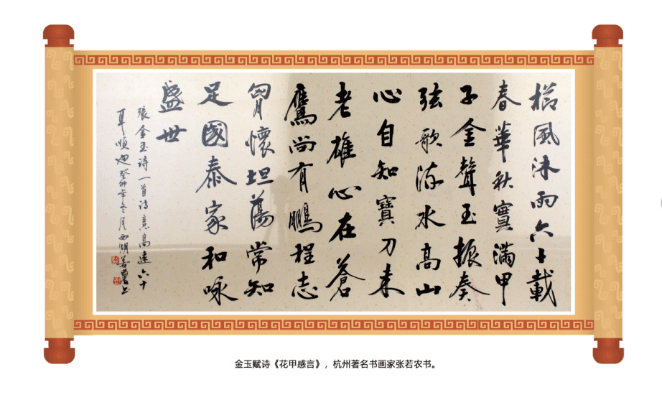 櫛風沐雨六十載
春華秋實滿甲
子金聲玉振奏
弦歌流水高山
心自知寶刀未
老雄心在蒼
鷹尚有鵬程志
胷懷坦蕩常知
足國泰家和咏
盛世
張金玉詩一首詩意高遠六十
耳順 癸卯年冬月西湖若農
金玉赋诗《花甲感言》，杭州著名书画家张若农书。